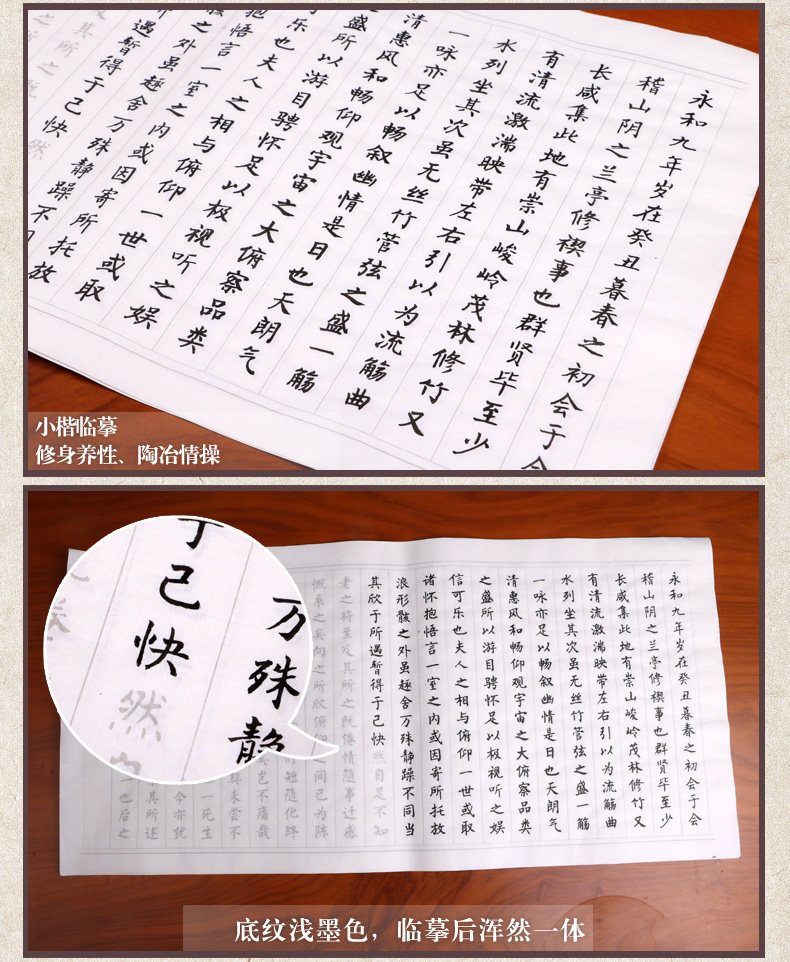 永和九年岁在癸丑暮春之初会于会
稽山阴之兰亭修禊事也群贤毕至少
长咸集此地有崇山峻岭茂林修竹又
有清流激湍映带左右引以为流觞曲
水列坐其次虽无丝竹管弦之盛一觞
一咏亦足以畅叙幽情是日也天朗气
清惠风和畅仰观宇宙之大俯察品类
之盛所以游目骋怀足以极视听之娱
可乐也夫人之相与俯仰一世或取
抱悟言一室之内或因寄所托放
之外虽趣舍万殊静躁不
遇暂得于己快然
及其所之既
小楷临摹
修身养性、陶冶情操
永和九年岁在癸丑暮春之初会于会
稽山阴之兰亭修禊事也群贤毕至少
长咸集此地有崇山峻岭茂林修竹又
有清流激湍映带左右引以为流觞曲
水列坐其次虽无丝竹管弦之盛一觞
一咏亦足以畅叙幽情是日也天朗气
清惠风和畅仰观宇宙之大俯察品类
之盛所以游目骋怀足以极视听之娱
信可乐也夫人之相与俯仰一世或取
诸怀抱悟言一室之内或因寄所托放
浪形骸之外虽趣舍万殊静躁不同当
其欣于所遇暂得于己快然自足不知
老之将至及其所之既倦情随事迁感
慨系之矣向之所欣俯仰之间已为陈
短随化终
岂不痛哉
未尝不
死生
今亦犹
其所述
也后之
万殊静
于己快然
底纹浅墨色，临摹后浑然一体